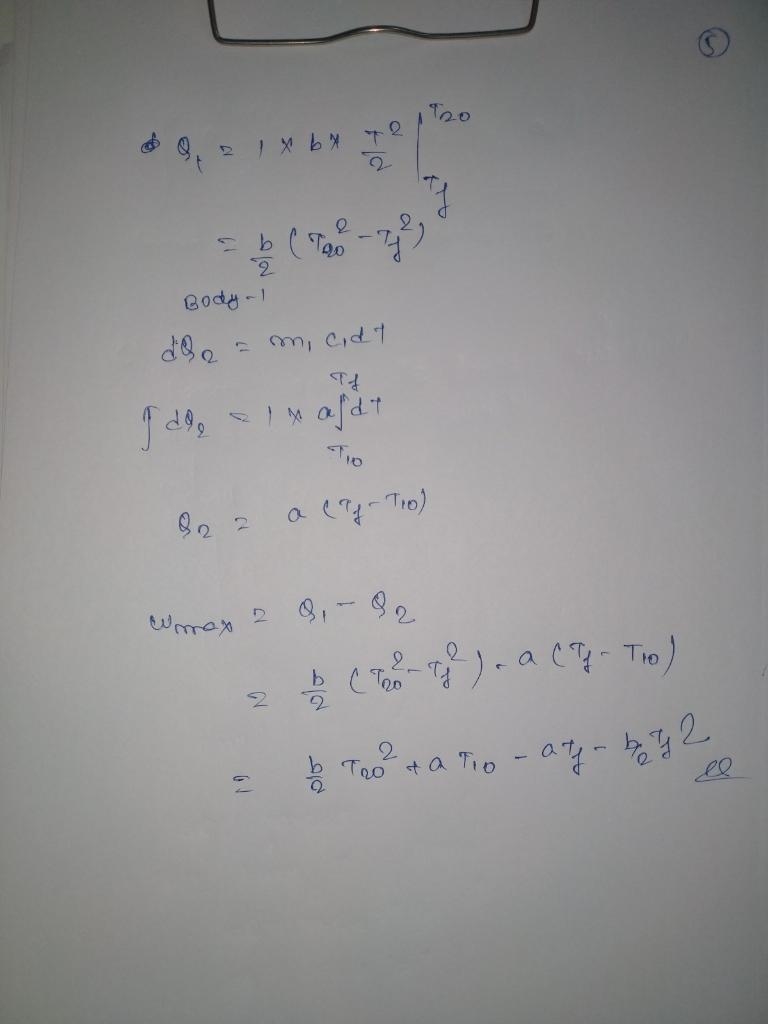 5
Q₁ = 1 × b × T²/2 |_{T_f}^{T₂₀}
= b/2 (T₂₀² - T_f²)
Body-1
dQ₂ = m₁ c₁dT
∫ dQ₂ = 1 × a ∫_{T₁₀}^{T_f} dT
Q₂ = a (T_f - T₁₀)
Wmax = Q₁ - Q₂
= b/2 (T₂₀² - T_f²) - a (T_f - T₁₀)
= b/2 T₂₀² + a T₁₀ - a T_f - b/2 T_f²